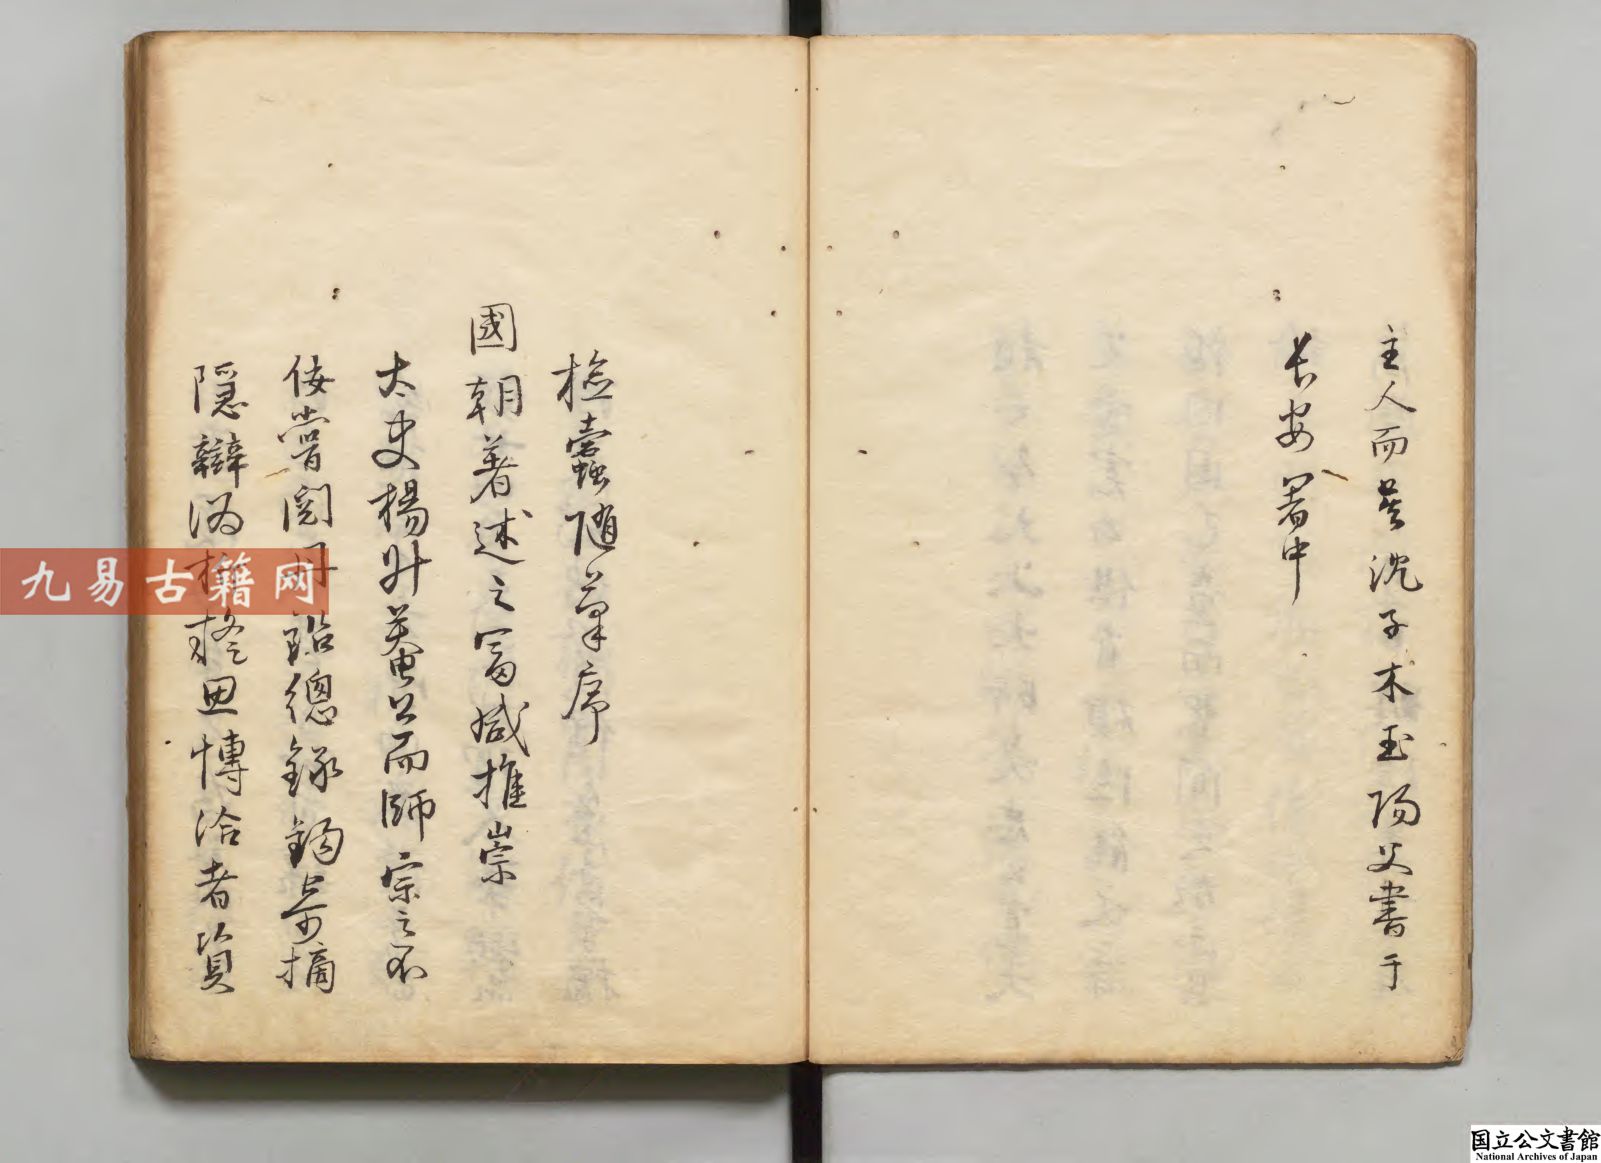 主人而□沈子木玉陽父書于
長安署中
檢蠹隨筆序
國朝著述之富咸推崇
太史楊升菴公而師宗之不
佞嘗閱丹鉛總錄鈎□摘
隱辯□□□思博洽者資
九易古籍网
国立公文書館
National Archives of Japan